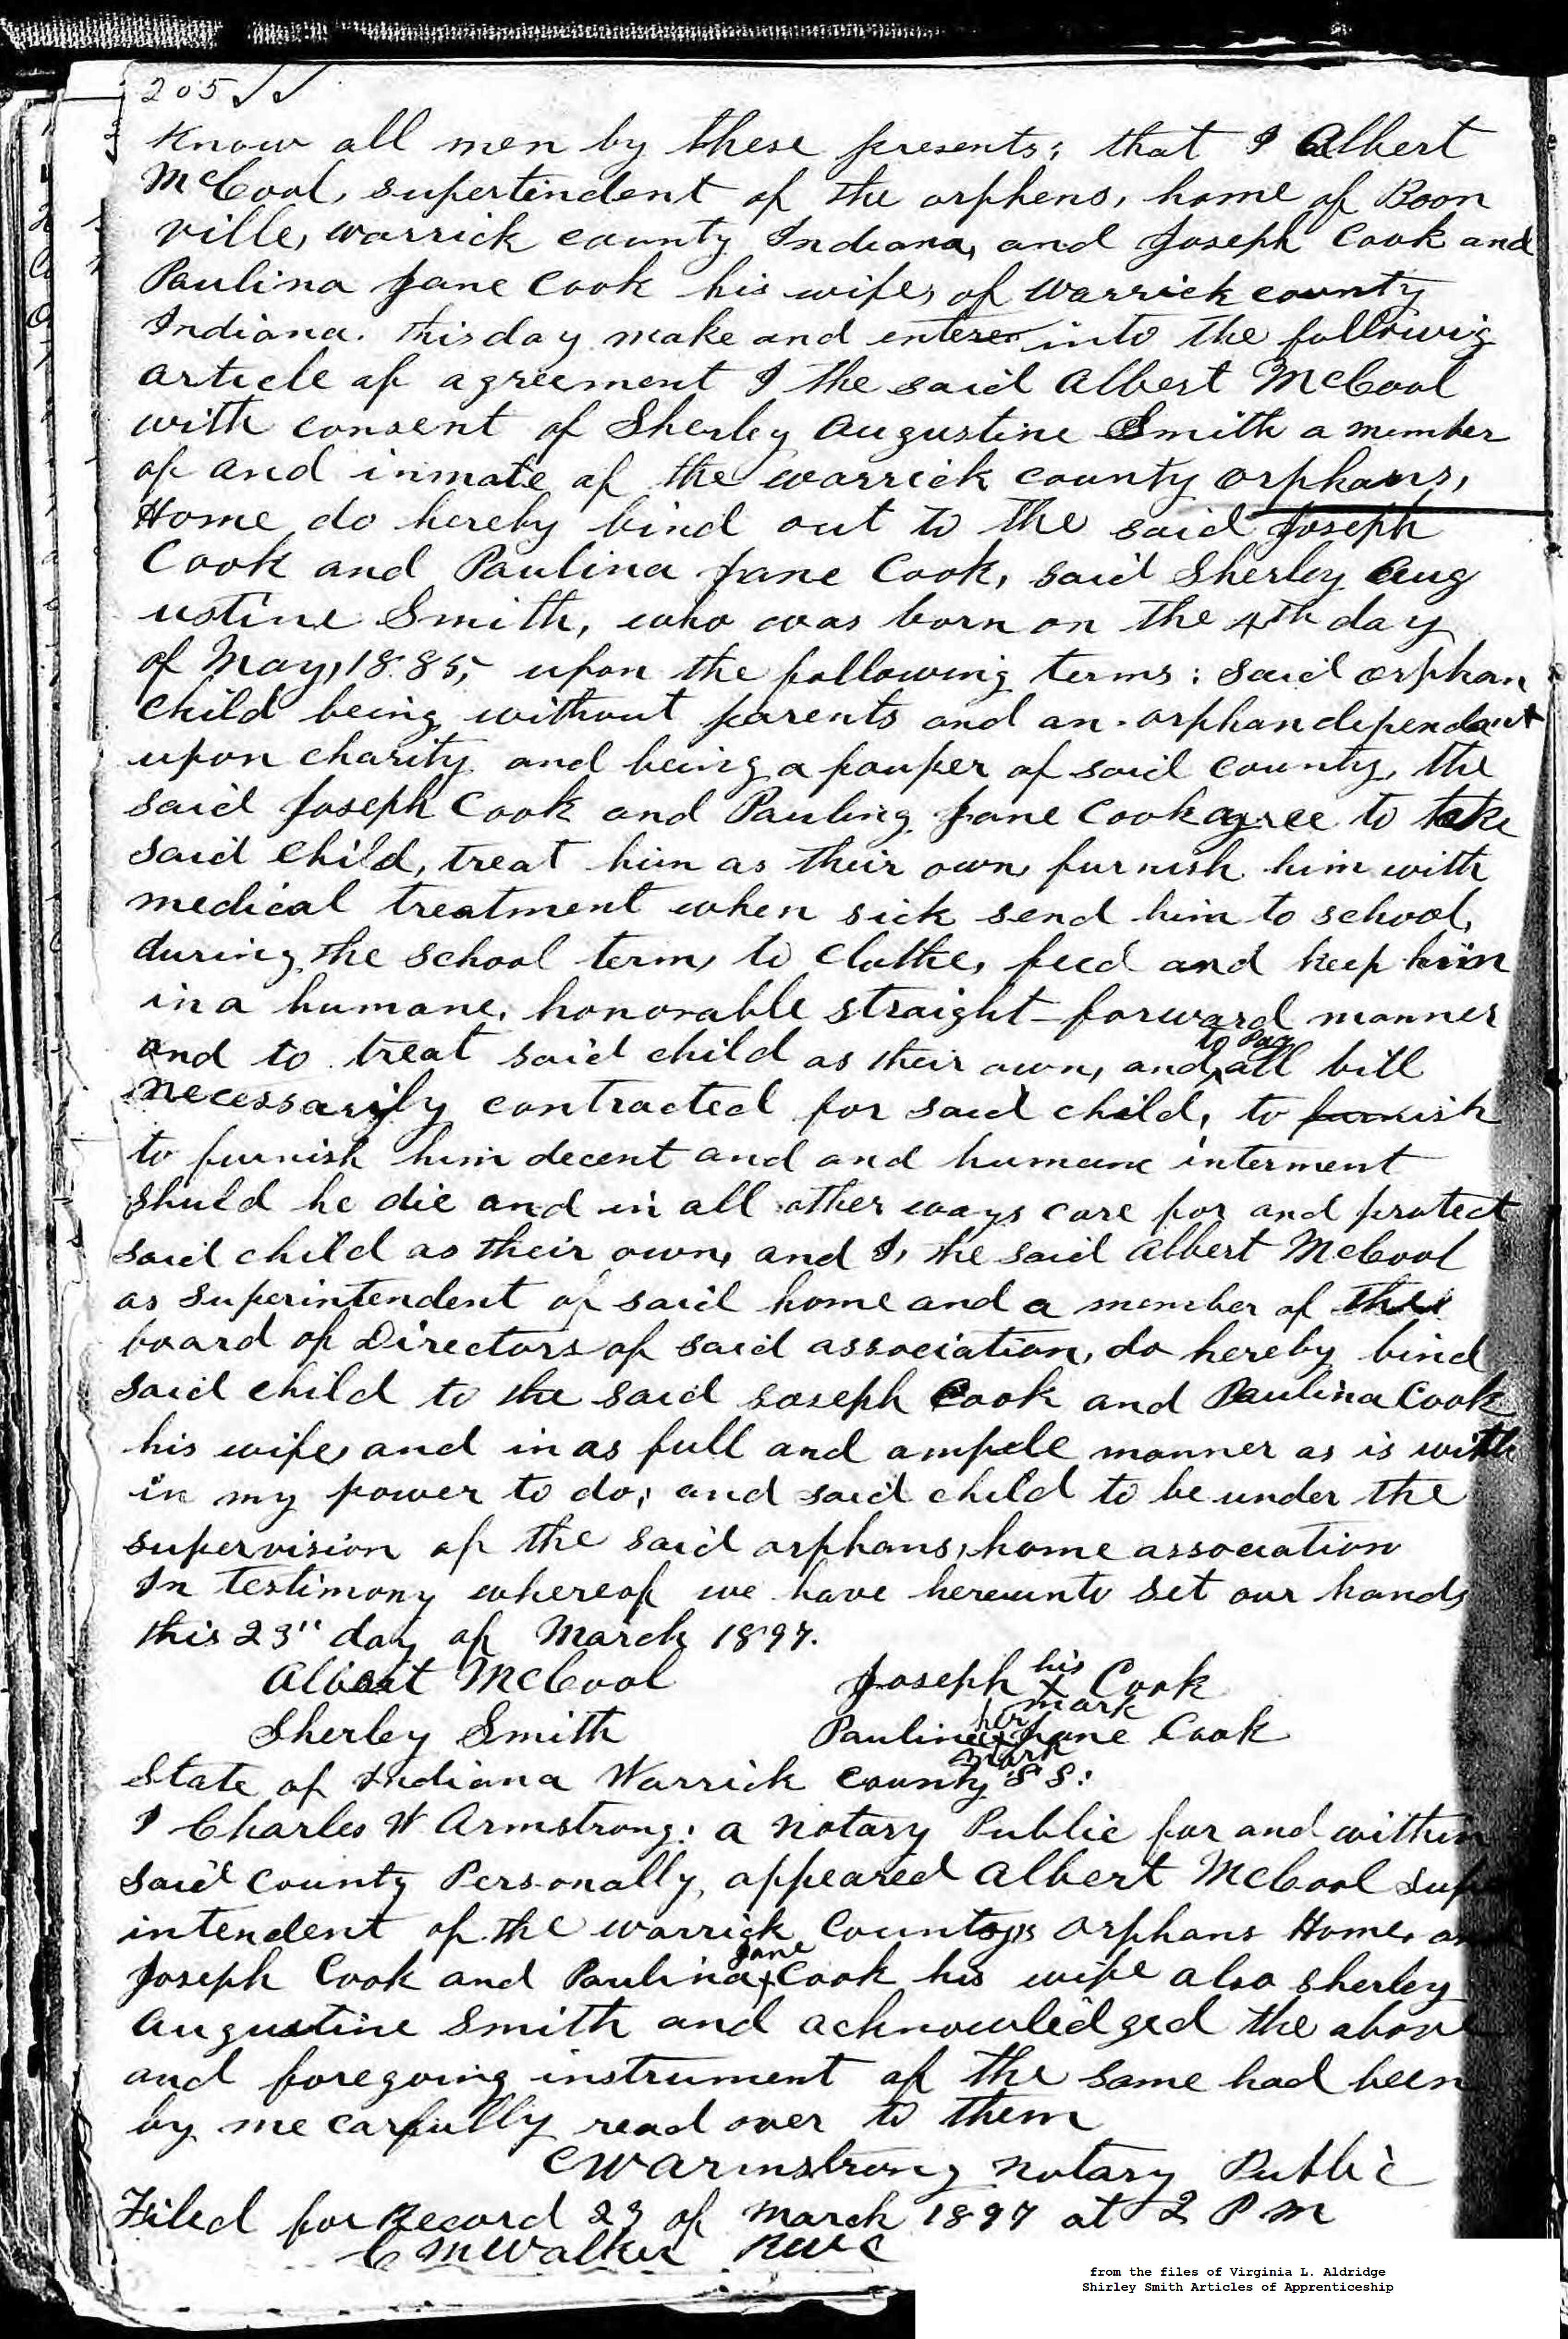 205
Know all men by these presents; that I Albert
McCool, supertindent of the orphens, home of Boon
ville, Warrick county Indiana, and Joseph Cook and
Paulina Jane Cook his wife, of Warrick county
Indiana. this day make and enter into the followig
article of agreement I the said Albert McCool
with consent of Sherley Augustine Smith a member
of and inmate of the Warrick county orphans,
Home do hereby bind out to the said Joseph
Cook and Paulina Jane Cook, said Sherley Aug
ustine Smith, who was born on the 4th day
of May, 1885, upon the following terms: said orphan
child being without parents and an orphan dependant
upon charity and being a pauper of said county, the
said Joseph Cook and Pauling Jane Cook agree to take
said child, treat him as their own, furnish him with
medical treatment when sick send him to school,
during the school term, to clothe, feed and keep him
in a humane, honorable straight-forward manner
and to treat said child as their own, and to pay all bill
necessarily contracted for said child, to furnish
to furnish him decent and and humane interment
shuld he die and in all other ways care for and protect
said child as their own, and I, the said Albert McCool
as superintendent of said home and a member of the
board of Directors of said association, do hereby bind
said child to the said soseph Cook and Paulina Cook
his wife, and in as full and ampele manner as is with
in my power to do; and said child to be under the
supervision of the said orphans, home association
In testimony whereof we have hereunto set our hands
this 23" day of March 1897.
Albert McCool Joseph his X mark Cook
Sherley Smith Paulina her X mark Jane Cook
State of Indiana Warrick County SS:
I Charles W Armstrong: a Notary Public for and within
said County Personally, appeared Albert McCool sup
intendent of the Warrick Countys Orphans Home, and
Joseph Cook and Paulina Jane Cook his wife also Sherley
Augustine Smith and acknowledged the above
and foregoing instrument of the same had been
by me carfully read over to them
CW Armstrong Notary Public
Filed for Record 23 of March 1897 at 2 P M
C M Walker RWC
from the files of Virginia L. Aldridge
Shirley Smith Articles of Apprenticeship